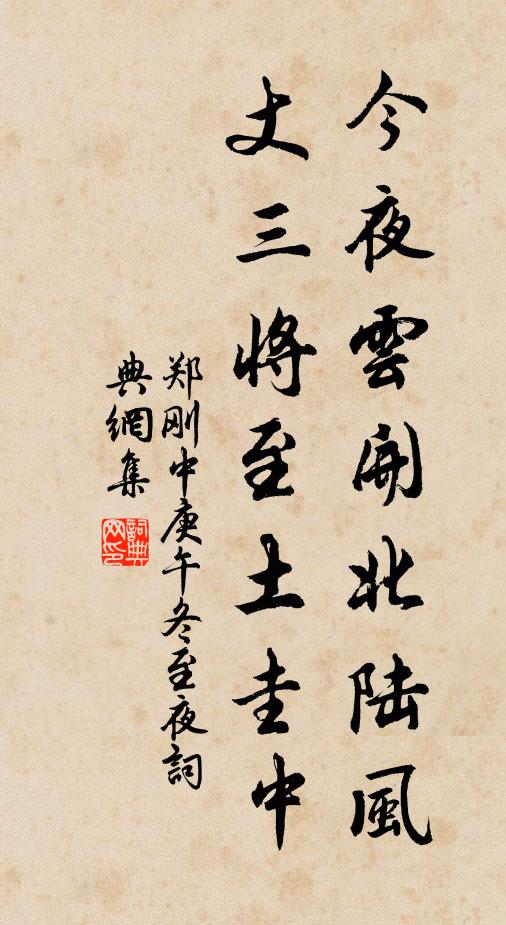 今夜雲開北陆風
丈三將至土圭中
郑刚中庚午冬至夜詞
典網集
詞典网印